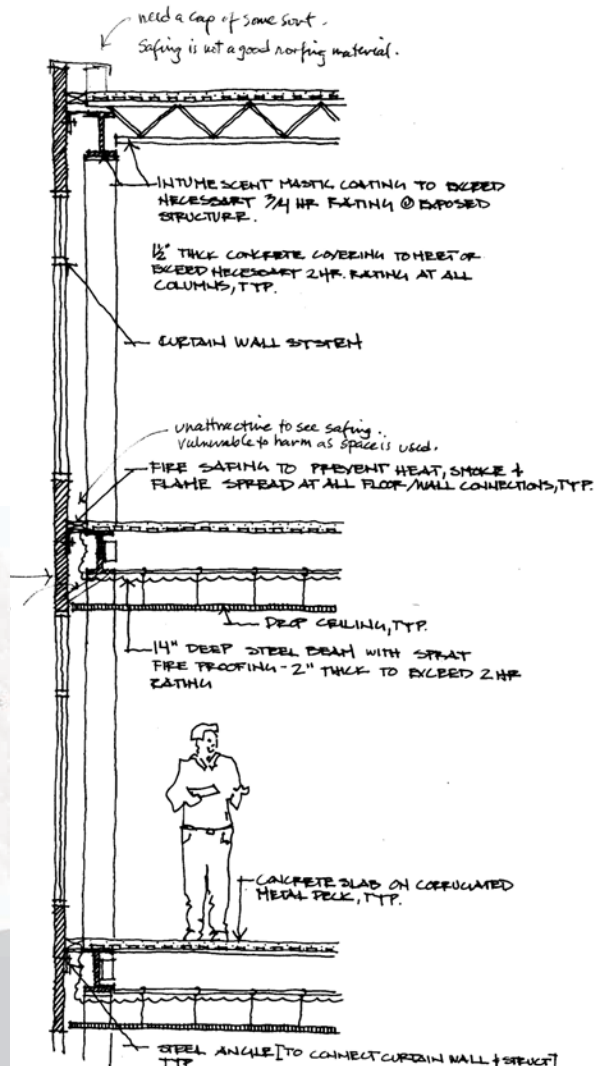 need a cap of some sort.
Safing is not a good roofing material.
INTUMESCENT MASTIC COATING TO EXCEED
NECESSARY 3/4 HR RATING @ EXPOSED
STRUCTURE.
1½" THICK CONCRETE COVERING TO MEET OR
EXCEED NECESSARY 2 HR. RATING AT ALL
COLUMNS, TYP.
CURTAIN WALL SYSTEM
unattractive to see safing.
vulnerable to harm as space is used.
FIRE SAFING TO PREVENT HEAT, SMOKE +
FLAME SPREAD AT ALL FLOOR/WALL CONNECTIONS, TYP.
DROP CEILING, TYP.
14" DEEP STEEL BEAM WITH SPRAY
FIRE PROOFING - 2" THICK TO EXCEED 2 HR
RATING
CONCRETE SLAB ON CORRUGATED
METAL DECK, TYP.
STEEL ANGLE [TO CONNECT CURTAIN WALL + STRUCT]
TYP